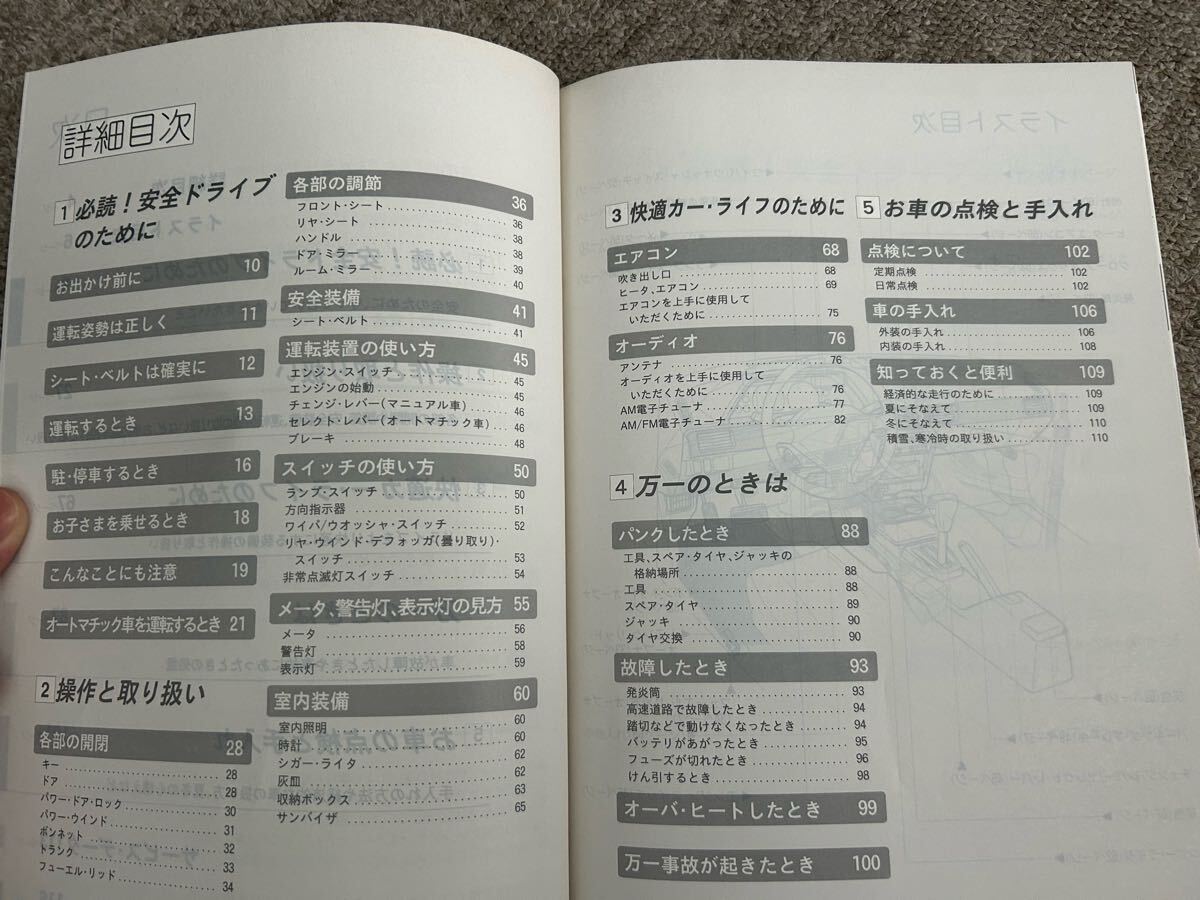 詳細目次
1 必読！安全ドライブ
のために
お出かけ前に 10
運転姿勢は正しく 11
シート・ベルトは確実に 12
運転するとき 13
駐・停車するとき 16
お子さまを乗せるとき 18
こんなことにも注意 19
オートマチック車を運転するとき 21
2 操作と取り扱い
各部の開閉 28
キー 28
ドア 28
パワー・ドア・ロック 30
パワー・ウインド 31
ボンネット 32
トランク 33
フューエル・リッド 34
各部の調節 36
フロント・シート 36
リヤ・シート 38
ハンドル 38
ドア・ミラー 39
ルーム・ミラー 40
安全装備 41
シート・ベルト 41
運転装置の使い方 45
エンジン・スイッチ 45
エンジンの始動 45
チェンジ・レバー(マニュアル車) 46
セレクト・レバー(オートマチック車) 46
ブレーキ 48
スイッチの使い方 50
ランプ・スイッチ 50
方向指示器 51
ワイパ/ウオッシャ・スイッチ 52
リヤ・ウインド・デフォッガ(曇り取り)・
スイッチ 53
非常点滅灯スイッチ 54
メータ、警告灯、表示灯の見方 55
メータ 56
警告灯 58
表示灯 59
室内装備 60
室内照明 60
時計 60
シガー・ライタ 62
灰皿 62
収納ボックス 63
サンバイザ 65
3 快適カー・ライフのために
エアコン 68
吹き出し口 68
ヒータ、エアコン 69
エアコンを上手に使用して
いただくために 75
オーディオ 76
アンテナ 76
オーディオを上手に使用して
いただくために 76
AM電子チューナ 77
AM/FM電子チューナ 82
4 万一のときは
パンクしたとき 88
工具、スペア・タイヤ、ジャッキの
格納場所 88
工具 88
スペア・タイヤ 89
ジャッキ 90
タイヤ交換 90
故障したとき 93
発炎筒 93
高速道路で故障したとき 94
踏切などで動けなくなったとき 94
バッテリがあがったとき 95
フューズが切れたとき 96
けん引するとき 98
オーバ・ヒートしたとき 99
万一事故が起きたとき 100
5 お車の点検と手入れ
点検について 102
定期点検 102
日常点検 102
車の手入れ 106
外装の手入れ 106
内装の手入れ 108
知っておくと便利 109
経済的な走行のために 109
夏にそなえて 109
冬にそなえて 110
積雪、寒冷時の取り扱い 110